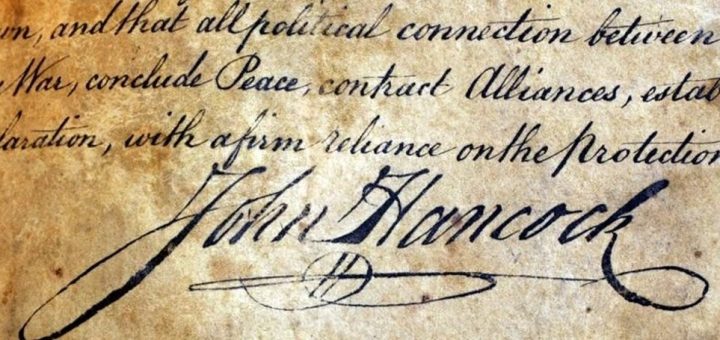 and that all political connection between
War, conclude Peace, contract Alliances, estab
laration, with a firm reliance on the Protection
John Hancock